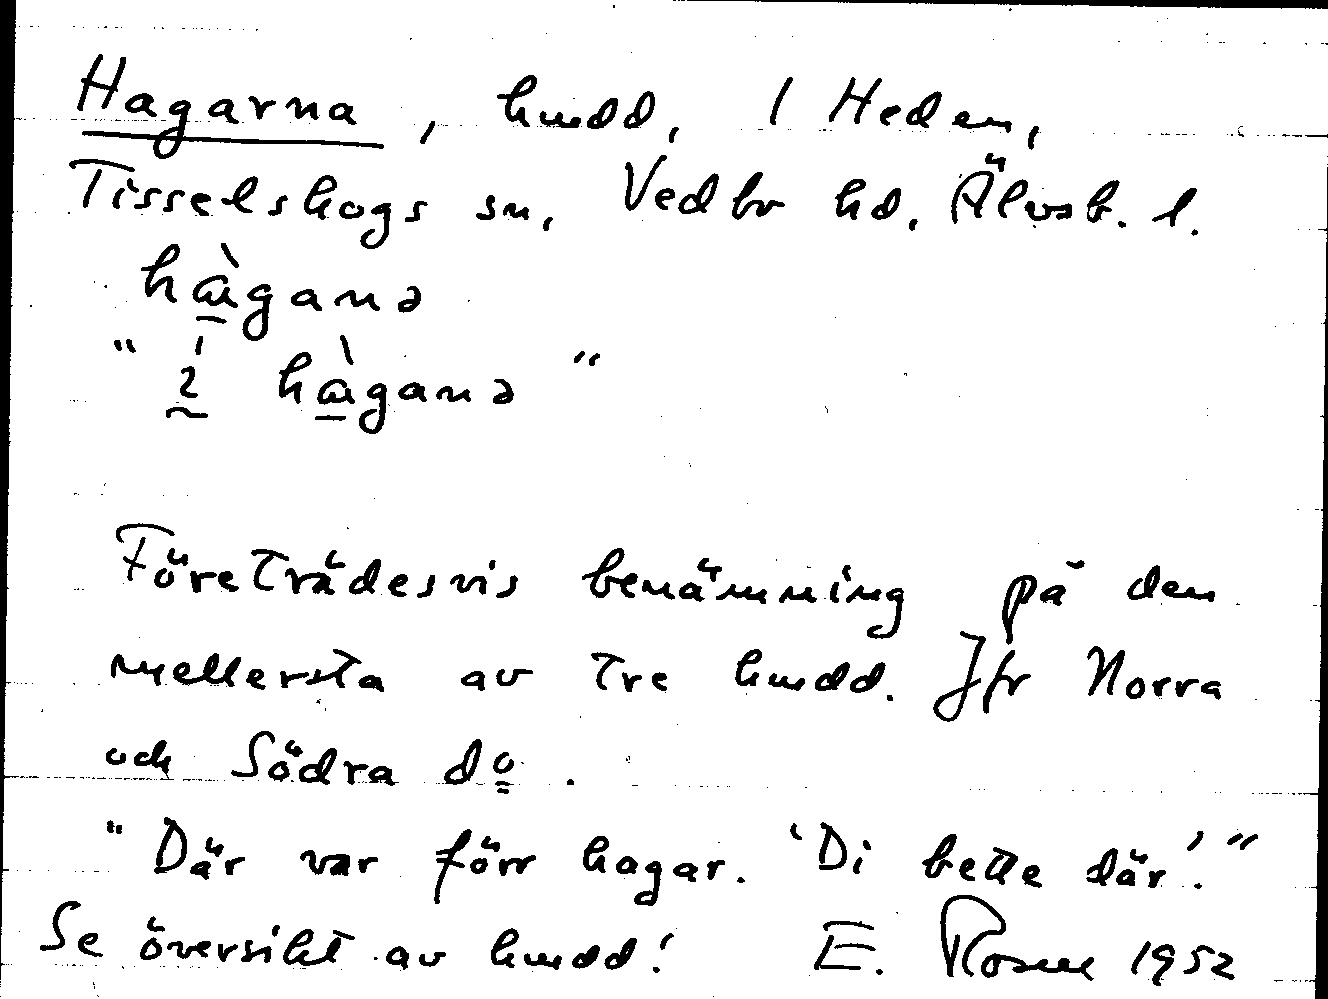 Hagarna, hmdd, 1 Heden,
Tisselskogs sn, Vedbo hd. Älvsb. l.
hàganə
"i hàganə"
Företrädesvis benämning på den
mellersta av tre hmdd. Jfr Norra
och Södra do.
"Där var förr hagar. 'Di bette där'."
Se översikt av hmdd! E. Rosell 1952